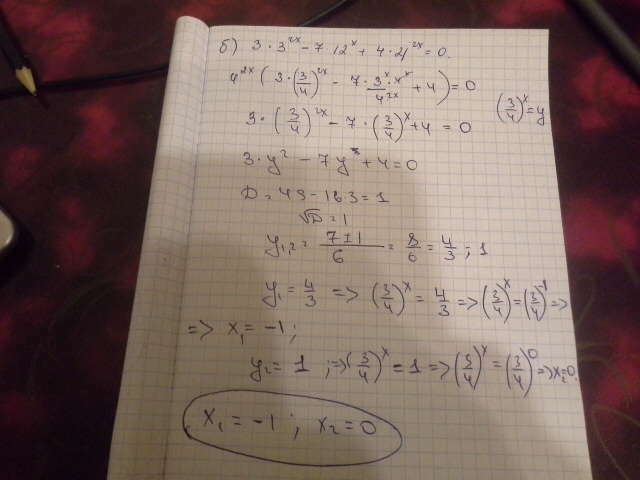 б) 3·3^2x − 7·12^x + 4·4^2x = 0.
4^2x (3·(3/4)^2x − 7·3^x·4^x/4^2x + 4) = 0
3·(3/4)^2x − 7·(3/4)^x + 4 = 0
(3/4)^x = y
3·y^2 − 7y + 4 = 0
D = 49 − 16·3 = 1
√D = 1
y1,2 = 7±1/6 = 8/6 = 4/3 ; 1
y1 = 4/3 => (3/4)^x = 4/3 => (3/4)^x = (3/4)^-1 =>
=> x1 = −1;
y2 = 1 ;=> (3/4)^x = 1 => (3/4)^x = (3/4)^0 => x2 = 0.
x1 = −1 ; x2 = 0